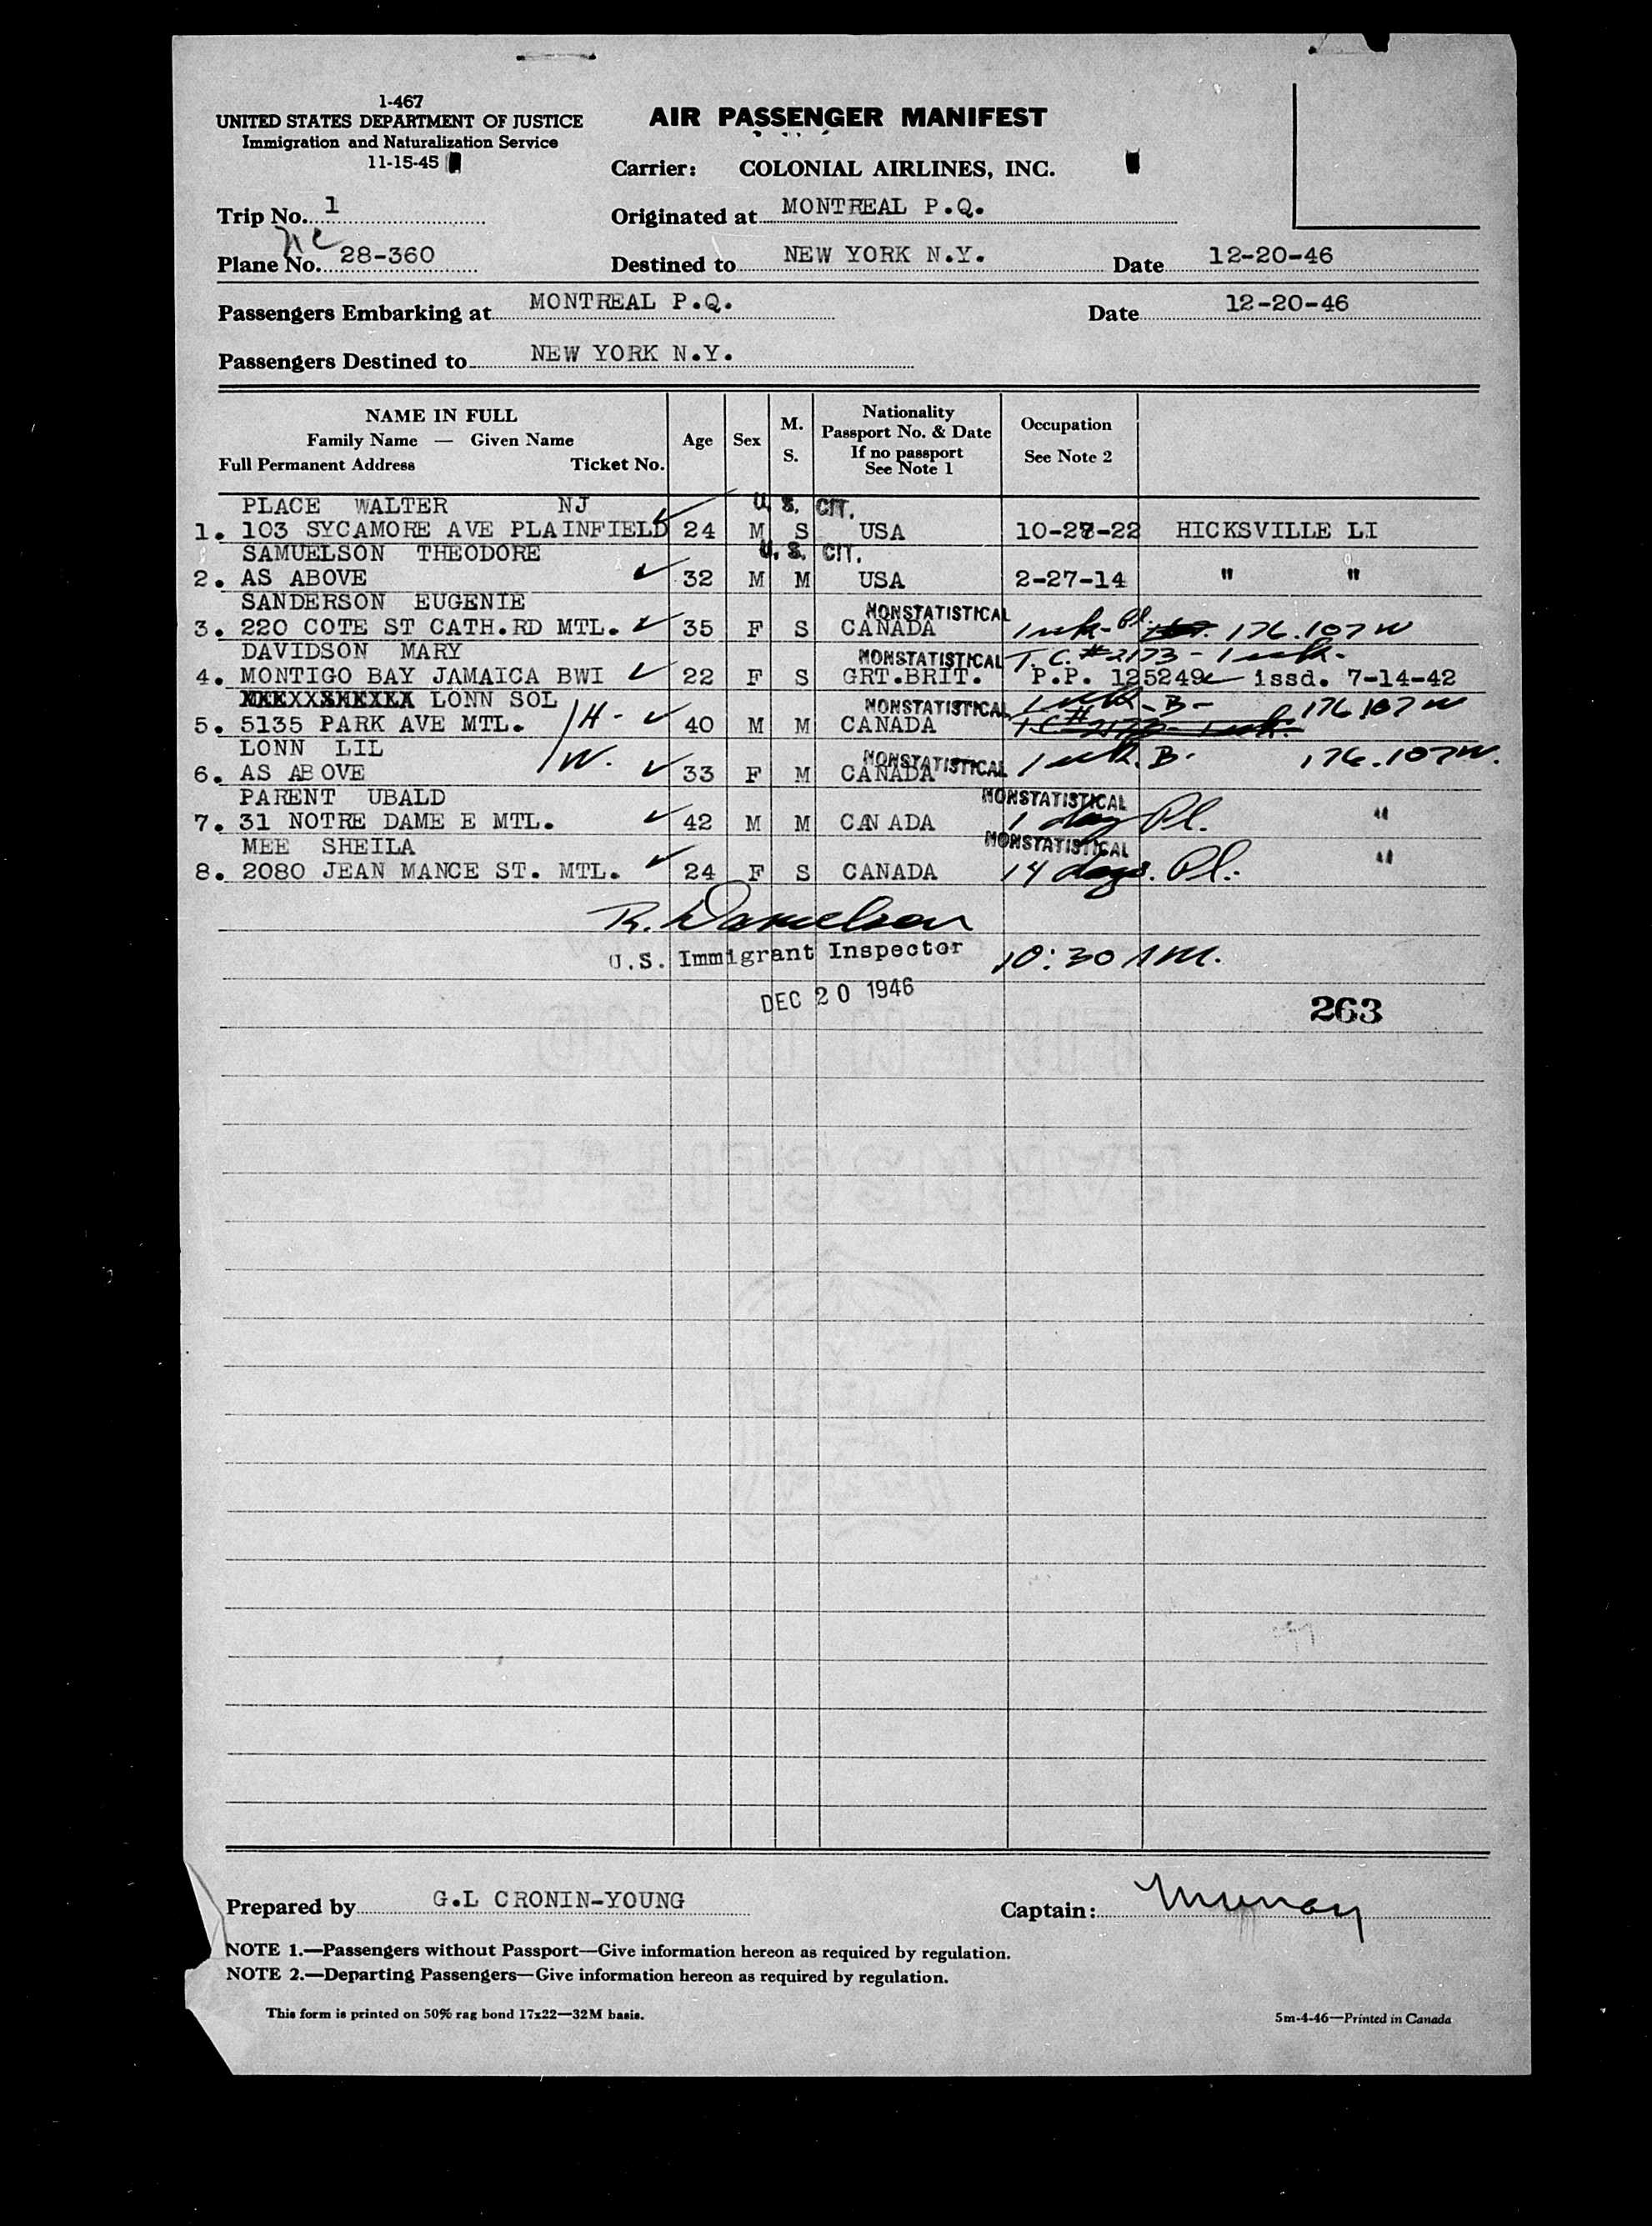 1-467
UNITED STATES DEPARTMENT OF JUSTICE
Immigration and Naturalization Service
11-15-45
AIR PASSENGER MANIFEST
Carrier: COLONIAL AIRLINES, INC.
Trip No. 1
Originated at MONTREAL P.Q.
NC
Plane No. 28-360
Destined to NEW YORK N.Y.
Date 12-20-46
Passengers Embarking at MONTREAL P.Q.
Date 12-20-46
Passengers Destined to NEW YORK N.Y.
NAME IN FULL
Family Name — Given Name
Full Permanent Address Ticket No.
Age
Sex
M.
S.
Nationality
Passport No. & Date
If no passport
See Note 1
Occupation
See Note 2
PLACE WALTER NJ U. S. CIT.
1. 103 SYCAMORE AVE PLAINFIELD 24 M S USA 10-27-22 HICKSVILLE LI
SAMUELSON THEODORE U. S. CIT.
2. AS ABOVE 32 M M USA 2-27-14 " "
SANDERSON EUGENIE NONSTATISTICAL
3. 220 COTE ST CATH.RD MTL. 35 F S CANADA 1 wk- Pl. 176.107W
DAVIDSON MARY NONSTATISTICAL T.C. #2173 - 1 wk.
4. MONTIGO BAY JAMAICA BWI 22 F S GRT.BRIT. P.P. 125249 issd. 7-14-42
LONN SOL NONSTATISTICAL 1 wk - B - 176.107W
5. 5135 PARK AVE MTL. /H- 40 M M CANADA T.C.# 2173 1 wk.
LONN LIL NONSTATISTICAL
6. AS ABOVE /W. 33 F M CANADA 1 wk. B. 176.107W.
PARENT UBALD NONSTATISTICAL
7. 31 NOTRE DAME E MTL. 42 M M CANADA 1 day Pl. "
MEE SHEILA NONSTATISTICAL
8. 2080 JEAN MANCE ST. MTL. 24 F S CANADA 14 days. Pl. "
R. Danielson
U.S. Immigrant Inspector 10:30 AM.
DEC 20 1946
263
Prepared by G.L CRONIN-YOUNG
Captain: Murray
NOTE 1.—Passengers without Passport—Give information hereon as required by regulation.
NOTE 2.—Departing Passengers—Give information hereon as required by regulation.
This form is printed on 50% rag bond 17x22—32M basis.
5m-4-46—Printed in Canada